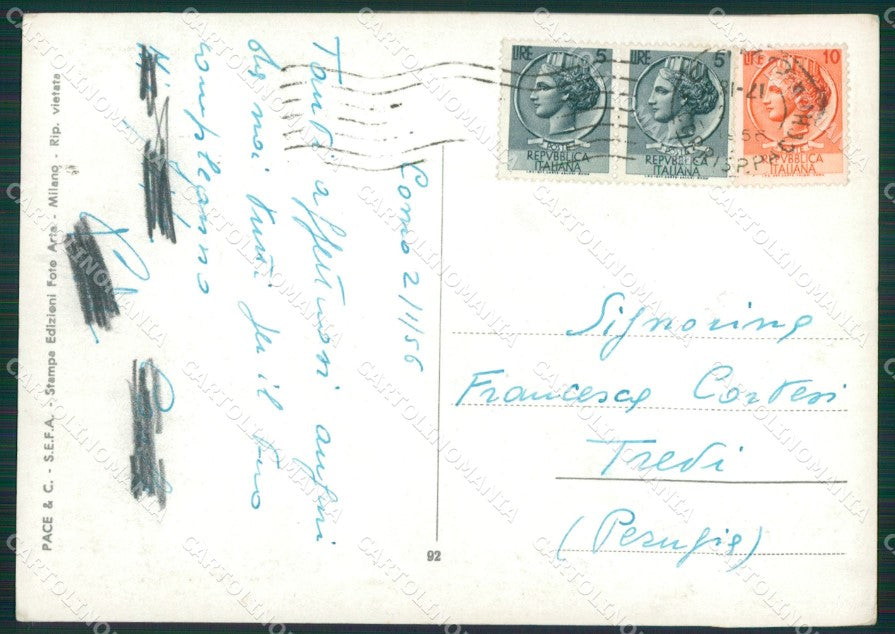 LIRE 5
POSTE
REPVBBLICA
ITALIANA
LIRE 5
POSTE
REPVBBLICA
ITALIANA
LIRE 10
REPVBBLICA
ITALIANA
Como 2/1/56
Tanti affettuosi auguri
da noi tutti per il tuo
compleanno
Signorina
Francesca Cortesi
Tredi
(Perugia)
92
PACE & C. - S.E.F.A. - Stampa Edizioni Foto Arte - Milano - Rip. vietata
CARTOLINOMANIA